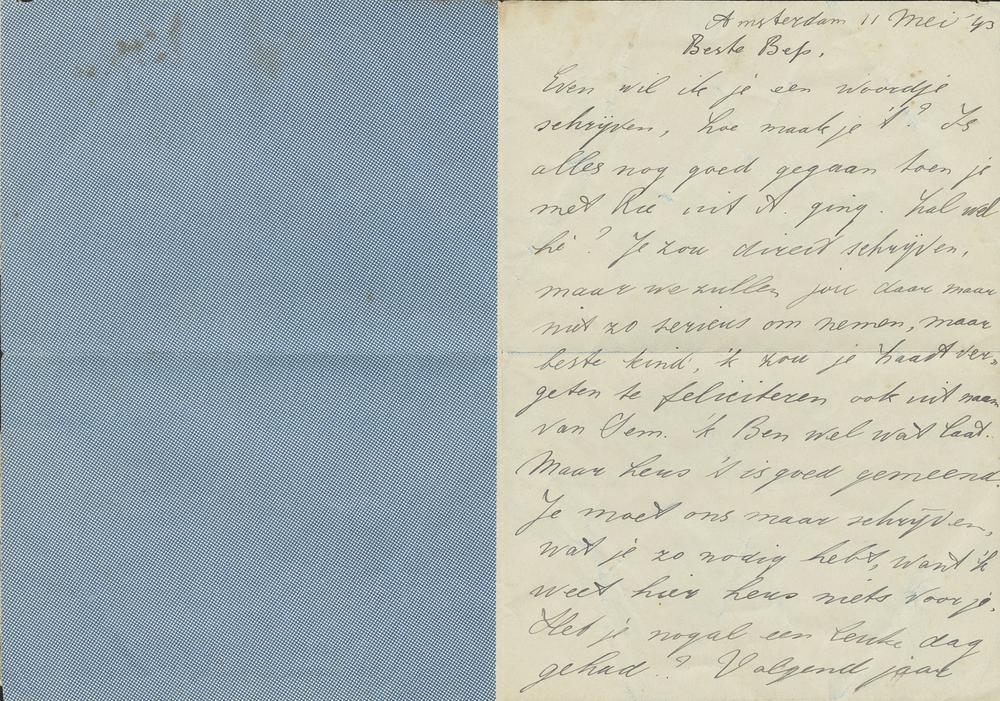 Amsterdam 11 Mei '43
Beste Bep,
Even wil ik je een woordje
schrijven, hoe maak je 't? Is
alles nog goed gegaan toen je
met Rie uit A. ging. Zal wel
hè? Je zou direct schrijven,
maar we zullen jou daar maar
niet zo serieus om nemen, maar
beste kind, 'k zou je haast ver-
geten te feliciteren ook uit naam
van Sem. 'k Ben wel wat laat.
Maar heus 't is goed gemeend.
Je moet ons maar schrijven,
wat je zo nodig hebt, want 'k
weet hier heus niets voor je.
Heb je nogal een leuke dag
gehad? Volgend jaar